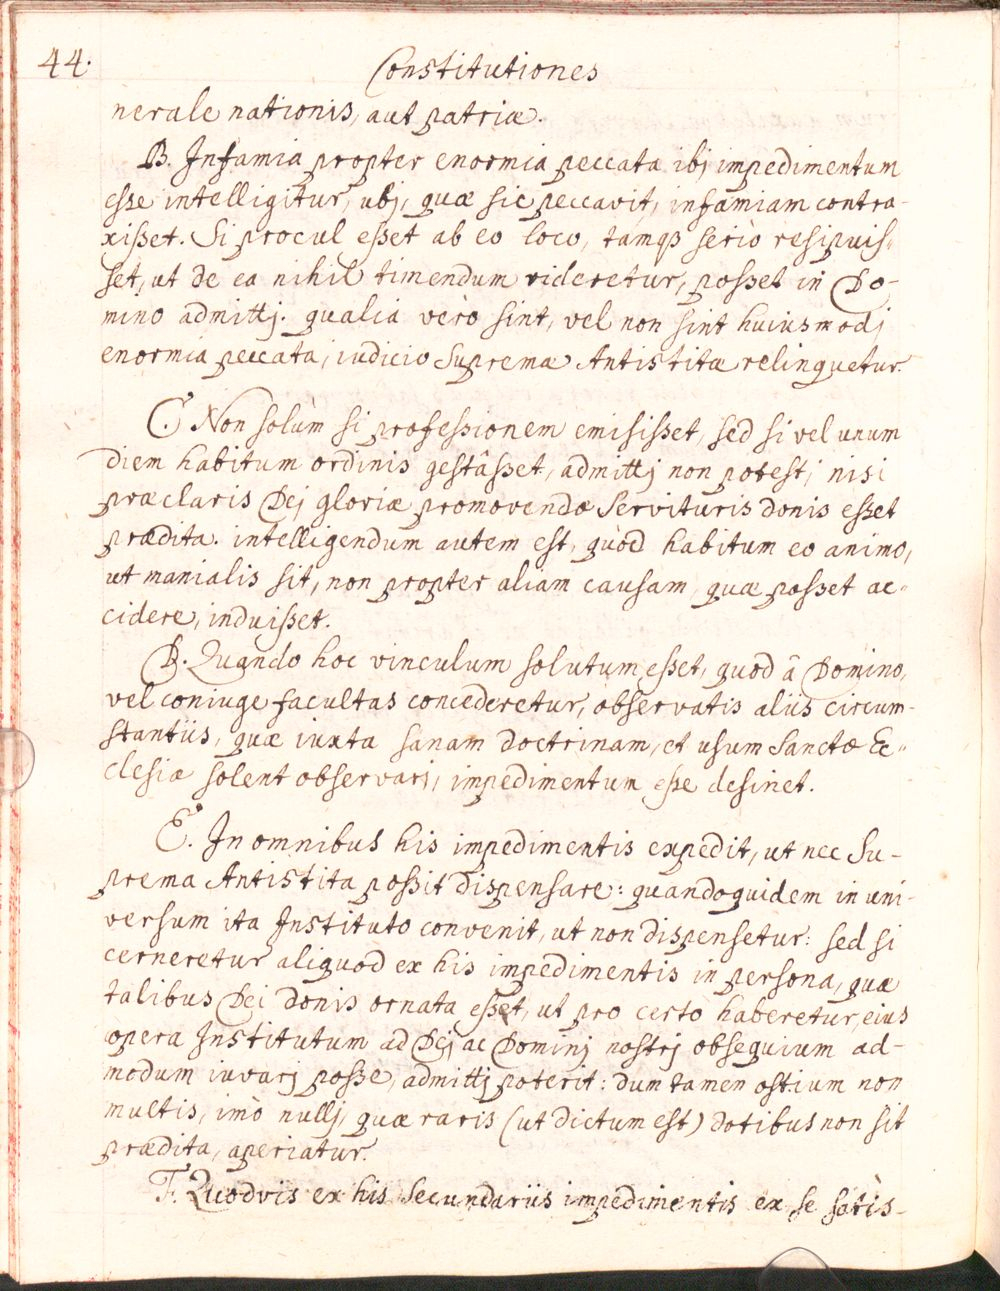 44.
Constitutiones
nerale nationis, aut patriæ.
B. Infamia propter enormia peccata ibj impedimentum
esse intelligitur, ubj, quæ sic peccavit, infamiam contra-
xisset. Si procul esset ab eo loco, tamqȝ seriò resipuis-
set, ut de ea nihil timendum videretur, posset in Do-
mino admittj. qualia verò sint, vel non sint huiusmodj
enormia peccata, iudicio Supremæ Antistitæ relinquetur.
C. Non solùm si professionem emisisset, sed si vel unum
diem habitum ordinis gestâsset, admittj non potest; nisi
præclaris Dej gloriæ promovendæ servituris donis esset
prædita. intelligendum autem est, quòd habitum eo animo,
ut manialis sit, non propter aliam causam, quæ posset ac-
cidere, induisset.
D. Quando hoc vinculum solutum esset, quod â Domino,
vel coniuge facultas concederetur, observatis aliis circum-
stantiis, quæ iuxta sanam doctrinam, et usum Sanctæ Ec-
clesiæ solent observarj, impedimentum esse desinet.
E. In omnibus his impedimentis expedit, ut nec Su-
prema Antistita possit dispensare: quandoquidem in uni-
versum ita Instituto convenit, ut non dispensetur: sed si
cerneretur aliquod ex his impedimentis in persona, quæ
talibus Dei donis ornata esset, ut pro certo haberetur, eius
opera Institutum ad Dej ac Dominj nostrj obsequium ad-
modum iuvarj posse, admittj poterit: dum tamen ostium non
multis, imò nullj, quæ raris (ut dictum est) dotibus non sit
prædita, aperiatur.
F. Quodvis ex his secundariis impedimentis ex se satis-